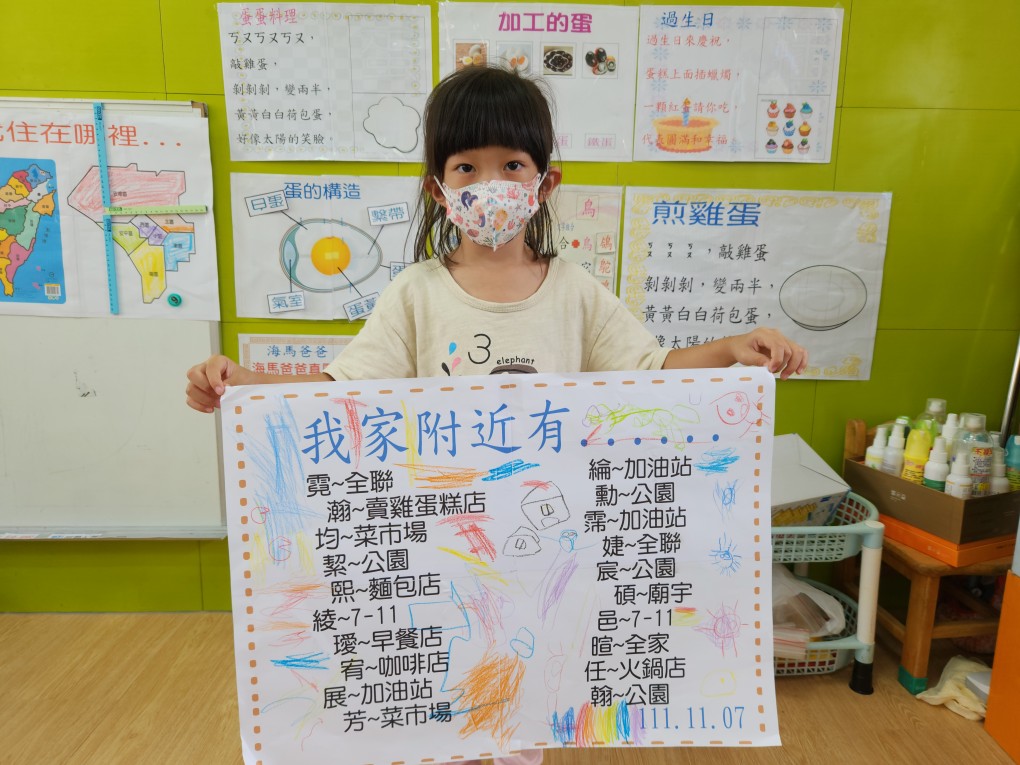 蛋蛋料理
ㄎㄡㄎㄡㄎㄡ，
敲雞蛋，
剝剝剝，變兩半，
黃黃白白荷包蛋，
好像太陽的笑臉，
加工的蛋
過生日
過生日來慶祝，
蛋糕上面插蠟燭，
一顆紅 請你吃，
代表圓滿和幸福
住在哪裡...
蛋的構造
白蛋
繫帶
氣室
蛋黃
煎雞蛋
ㄎㄎㄎ，敲雞蛋
剝剝剝，變兩半，
黃黃白白荷包蛋，
像太陽的
海馬爸爸
海馬爸爸真
3
elephant
我家附近有......
霓~全聯
瀚~賣雞蛋糕店
均~菜市場
絜~公園
熙~麵包店
綾~7-11
璦~早餐店
宥~咖啡店
展~加油站
芳~菜市場
綸~加油站
勳~公園
霈~加油站
婕~全聯
宸~公園
碩~廟宇
邑~7-11
暄~全家
任~火鍋店
翰~公園
111.11.07